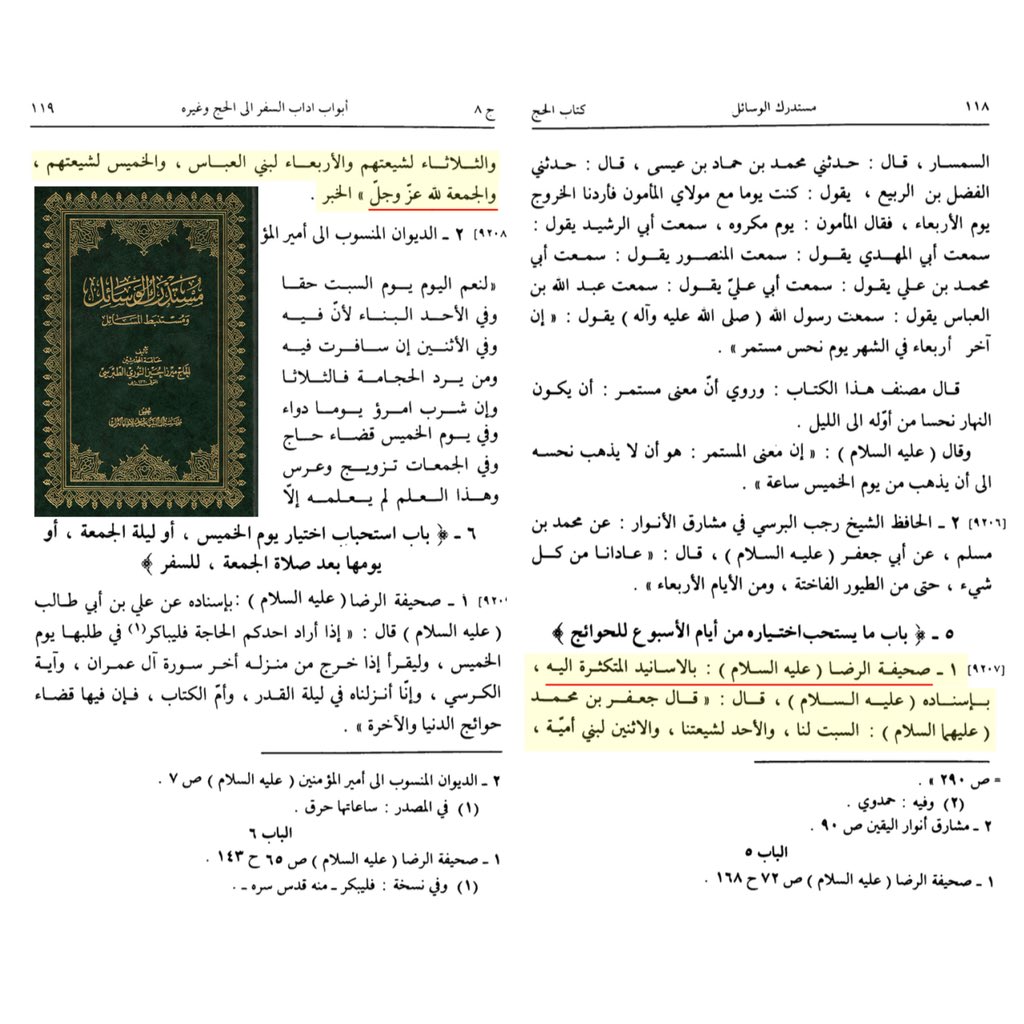 ١١٨ مستدرك الوسائل كتاب الحج
السمسار ، قال : حدثني محمد بن حماد بن عيسى ، قال : حدثني
الفضل بن الربيع ، يقول : كنت يوما مع مولاي المأمون فأردنا الخروج
يوم الأربعاء ، فقال المأمون : يوم مكروه ، سمعت أبي الرشيد يقول :
سمعت أبي المهدي يقول : سمعت المنصور يقول : سمعت أبي
محمد بن علي يقول : سمعت أبي عليّ يقول : سمعت عبد الله بن
العباس يقول : سمعت رسول الله ( صلى الله عليه وآله ) يقول : « إن
آخر أربعاء في الشهر يوم نحس مستمر » .
قال مصنف هذا الكتاب : وروي أنّ معنى مستمر : أن يكون
النهار نحسا من أوّله الى الليل .
وقال ( عليه السلام ) : « إن معنى المستمر : هو أن لا يذهب نحسه
الى أن يذهب من يوم الخميس ساعة » .
[٩٢٠٦] ٢ ـ الحافظ الشيخ رجب البرسي في مشارق الأنوار : عن محمد بن
مسلم ، عن أبي جعفر ( عليه السلام ) ، قال : « عادانا من كل
شيء ، حتى من الطيور الفاختة ، ومن الأيام الأربعاء » .
٥ ـ ﴿ باب ما يستحب اختياره من أيام الأسبوع للحوائج ﴾
[٩٢٠٧] ١ ـ صحيفة الرضا ( عليه السلام ) : بالاسانيد المتكثرة اليه ،
بإسناده ( عليه السلام ) ، قال : « قال جعفر بن محمد
( عليهما السلام ) : السبت لنا ، والأحد لشيعتنا ، والاثنين لبني أميّة ،
= ص ٢٩٠ » .
(٢) وفيه : حمدوي .
٢ ـ مشارق أنوار اليقين ص ٩٠ .
الباب ٥
١ ـ صحيفة الرضا ( عليه السلام ) ص ٧٢ ح ١٦٨ .
ج ٨ أبواب اداب السفر الى الحج وغيره ١١٩
والثلاثاء لشيعتهم والأربعاء لبني العباس ، والخميس لشيعتهم ،
والجمعة لله عزّ وجلّ » الخبر .
[٩٢٠٨ ٢ ـ الديوان المنسوب الى أمير المؤ
«لنعم اليوم يوم السبت حقا
وفي الأحد البناء لأنّ فيه
وفي الأثنين إن سافرت فيه
ومن يرد الحجامة فالثلاثا
وإن شرب امرؤ يوما دواء
وفي يوم الخميس قضاء حاج
وفي الجمعات تزويج وعرس
وهذا العلم لم يعلمه إلّا
مستدرك الوسائل
ومستنبط المسائل
تأليف
خاتمة المحدثين
الحاج ميرزا حسين النوري الطبرسي
تحقيق
٦ ـ ﴿ باب استحباب اختيار يوم الخميس ، أو ليلة الجمعة ، أو
يومها بعد صلاة الجمعة ، للسفر ﴾
[٩٢٠ ١ ـ صحيفة الرضا ( عليه السلام ) : بإسناده عن علي بن أبي طالب
( عليه السلام ) قال : « إذا أراد احدكم الحاجة فليباكر(١) في طلبها يوم
الخميس ، وليقرأ إذا خرج من منزله أخر سورة آل عمران ، وآية
الكرسي ، وإنّا أنزلناه في ليلة القدر ، وأمّ الكتاب ، فإن فيها قضاء
حوائج الدنيا والآخرة » .
٢ ـ الديوان المنسوب الى أمير المؤمنين ( عليه السلام ) ص ٧ .
(١) في المصدر : ساعاتها حرق .
الباب ٦
١ ـ صحيفة الرضا ( عليه السلام ) ص ٦٥ ح ١٤٣ .
(١) وفي نسخة : فليبكر ـ منه قدس سره ـ .